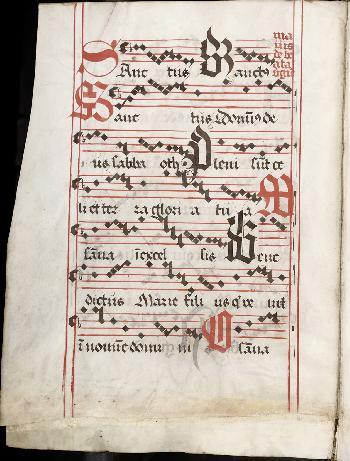 Sanc tus Sanctus
Sanc tus Domin9 de
us sabba oth Pleni sūt ce
li et ter ra glori a tu a
sāna ī excel sis Bene
dictus Marie fili us q ve nit
ī nomīe domi ni O sāna